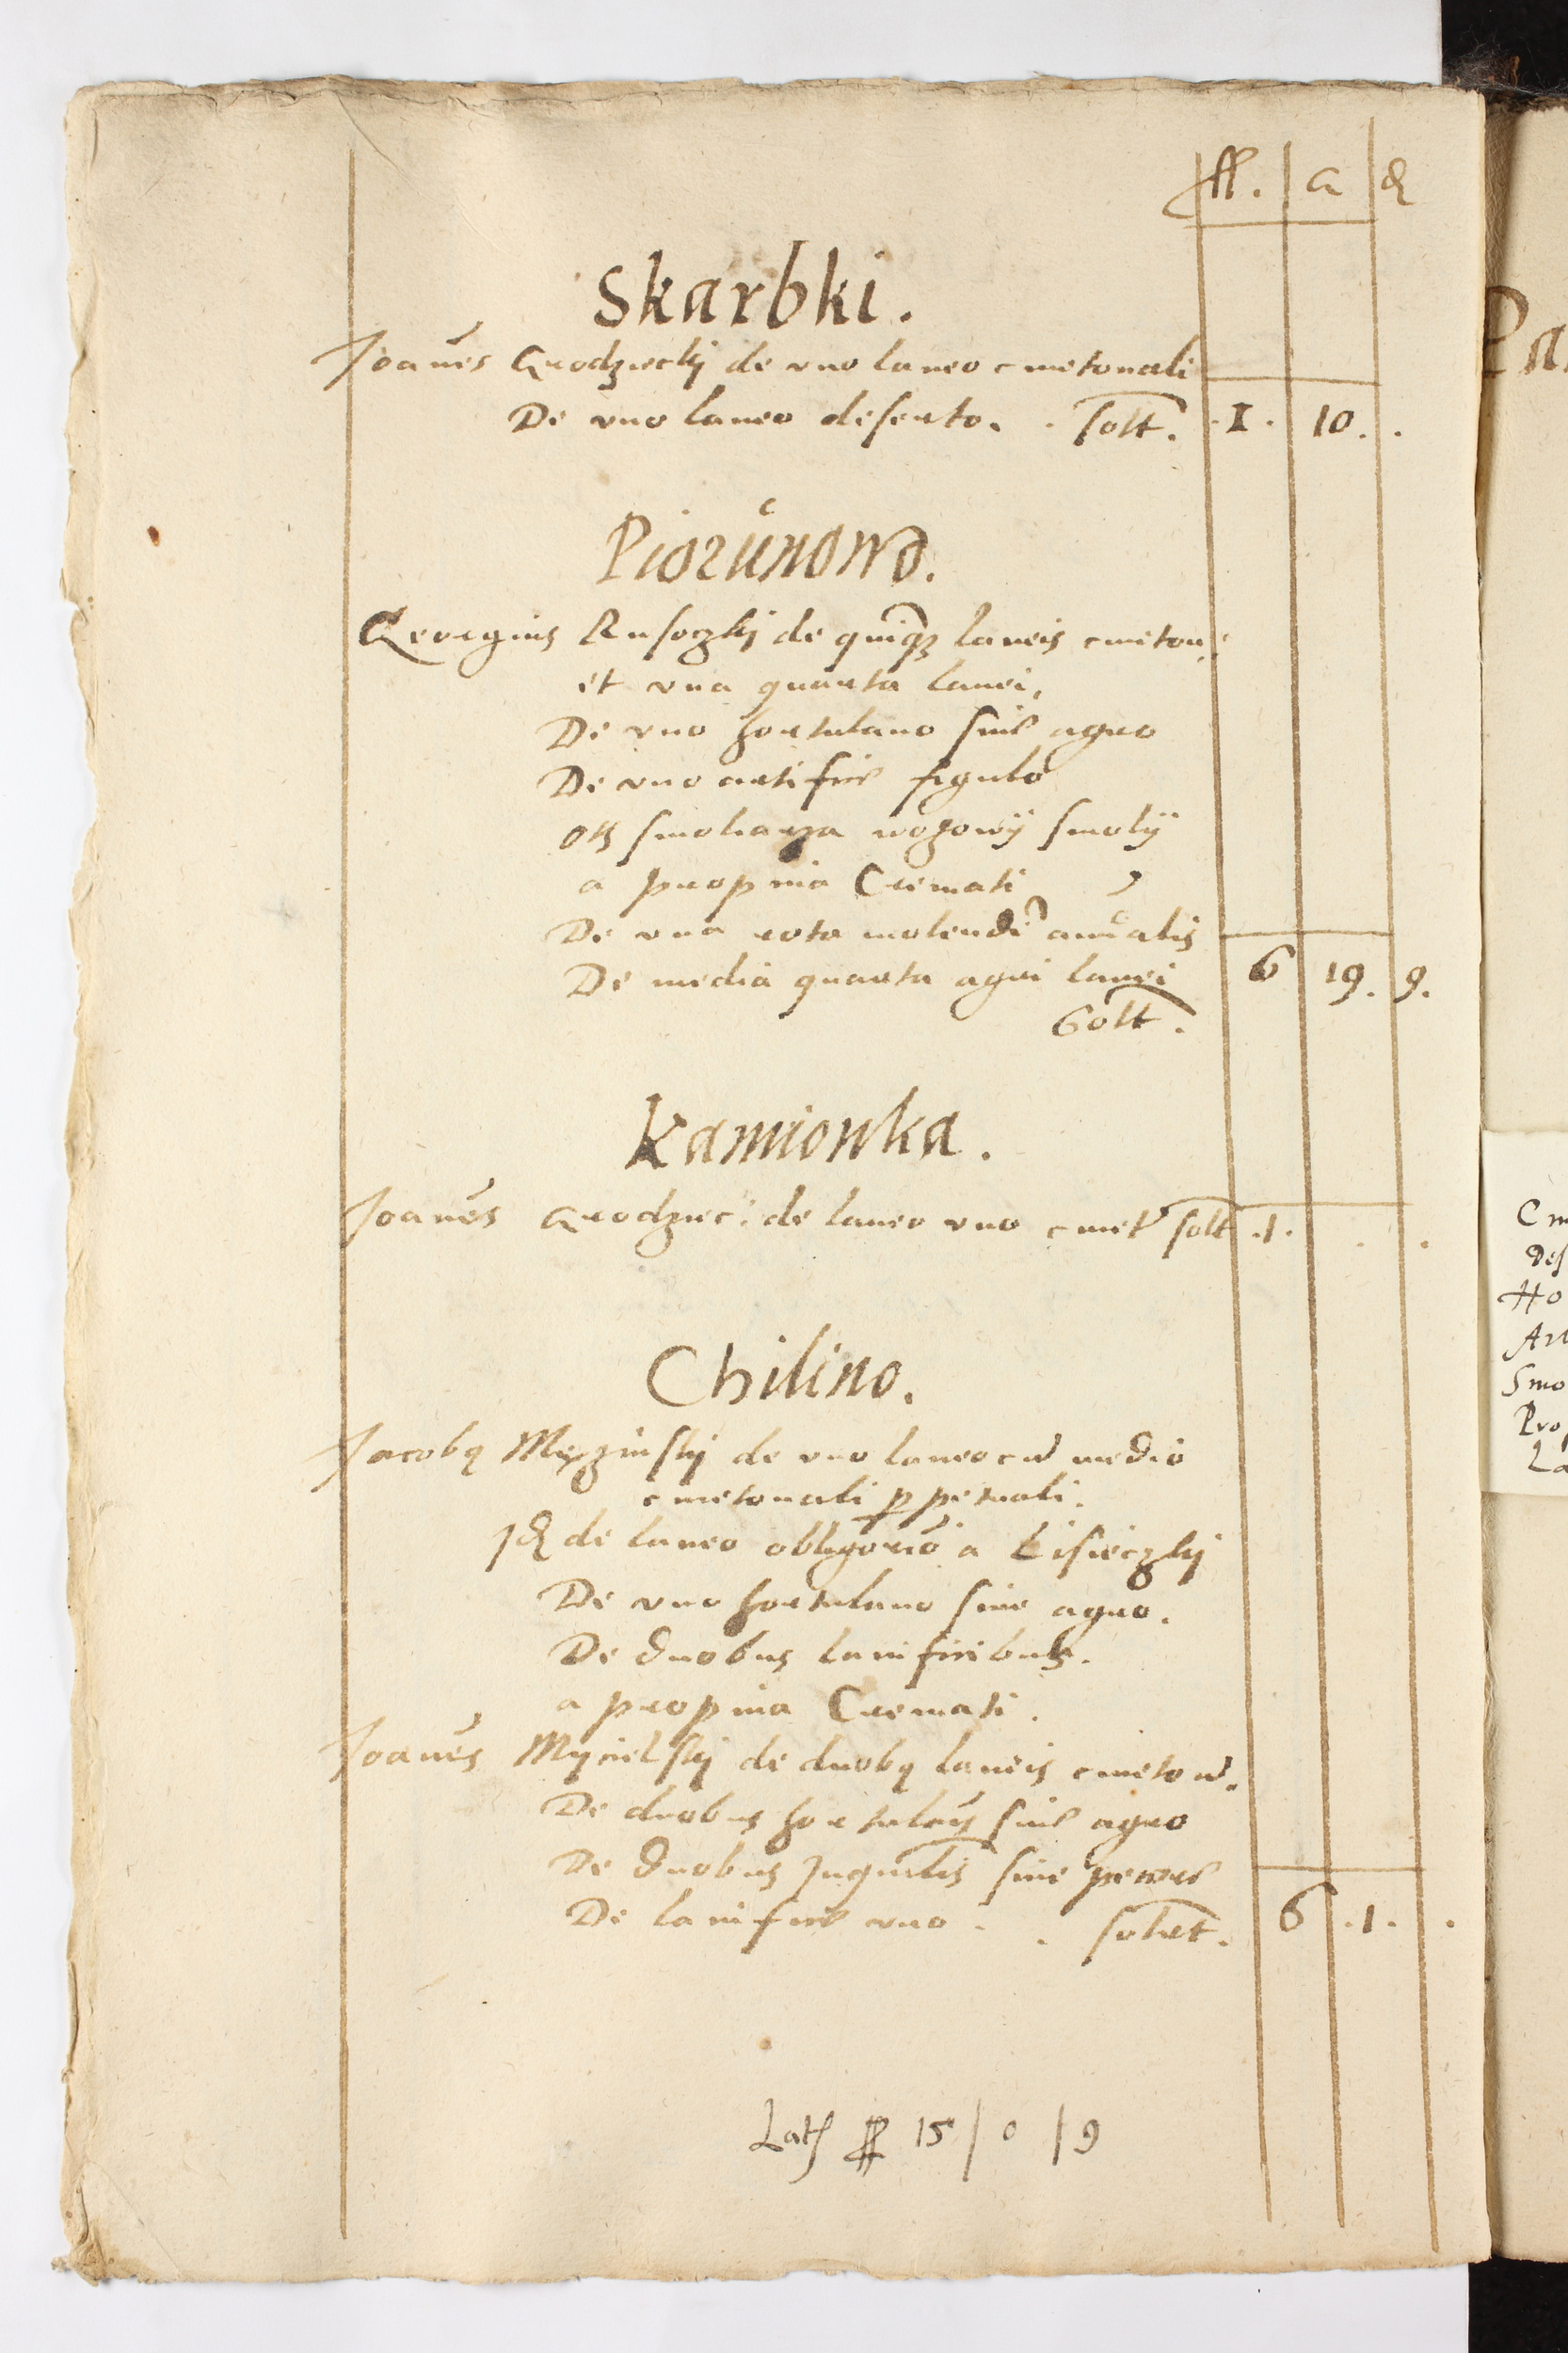 fl. | G | d
Skarbki.
Joanes Grodzieckj de vno laneo cmetonali
De vno laneo deserto. . solt. | 1. | 10. | .
Piorunowo.
Gregius Russoczkj de quinq3 laneis cmeton:
et vna quarta lanei,
De vno hortulano sine agro
De vno artifice figulo
Ott smolarza wozowÿ smolÿ
a propina Cremati
De vna rota molendi anualis
De media quarta agri lanei | 6 | 19. | 9.
Solt.
Kamionka.
Joanes Grodziec: de laneo vno cmet solt | .1. | . | .
Chilino.
Jacobq Męzinskj de vno laneo cu medio
cmetonali ppetuali.
Jd de laneo obligorio a Lisieczkj
De vno hortulano sine agro.
De duobus lanificibus.
a propina Cremati.
Joanes Mycielskj de duobq laneis cmeton.
De duobus hortulais sine agro
De duobus Inquilis sine pecore
De lanifice vno . . soluet. | 6 | .1. | .
Lats fl 15 | 0 | 9
Pa
Cm
Des
Ho
Art
Smo
Prop
La